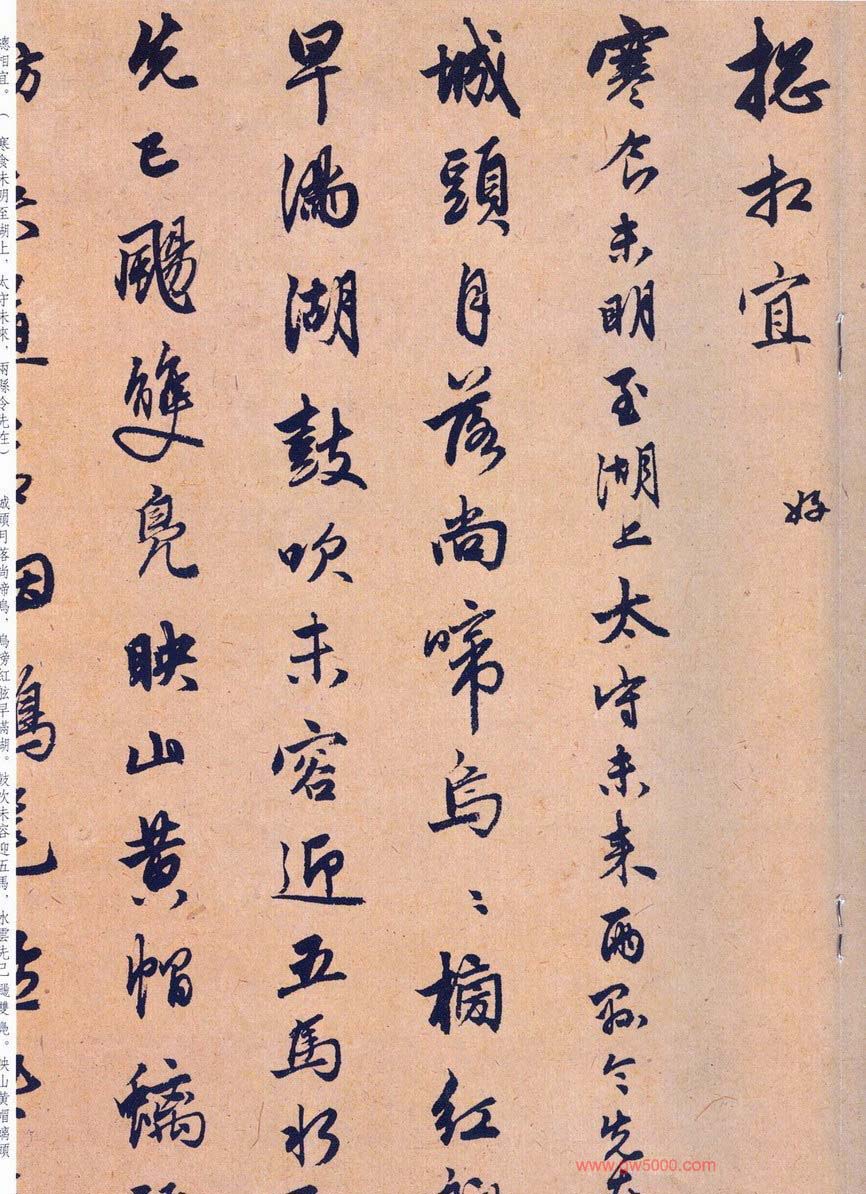 揔相宜
好
寒食未明至湖上太守未来兩縣令先在
城頭月落尚啼烏〻榜紅
早滿湖鼓吹未容迎五馬水
先已颺雙鳧映山黃帽螭
總相宜。（寒食未明至湖上，太守未來，兩縣令先在） 城頭月落尚啼烏，烏榜紅舷早滿湖。鼓吹未容迎五馬，水雲先已颺雙鳧。映山黃帽螭頭
www.gw5000.com